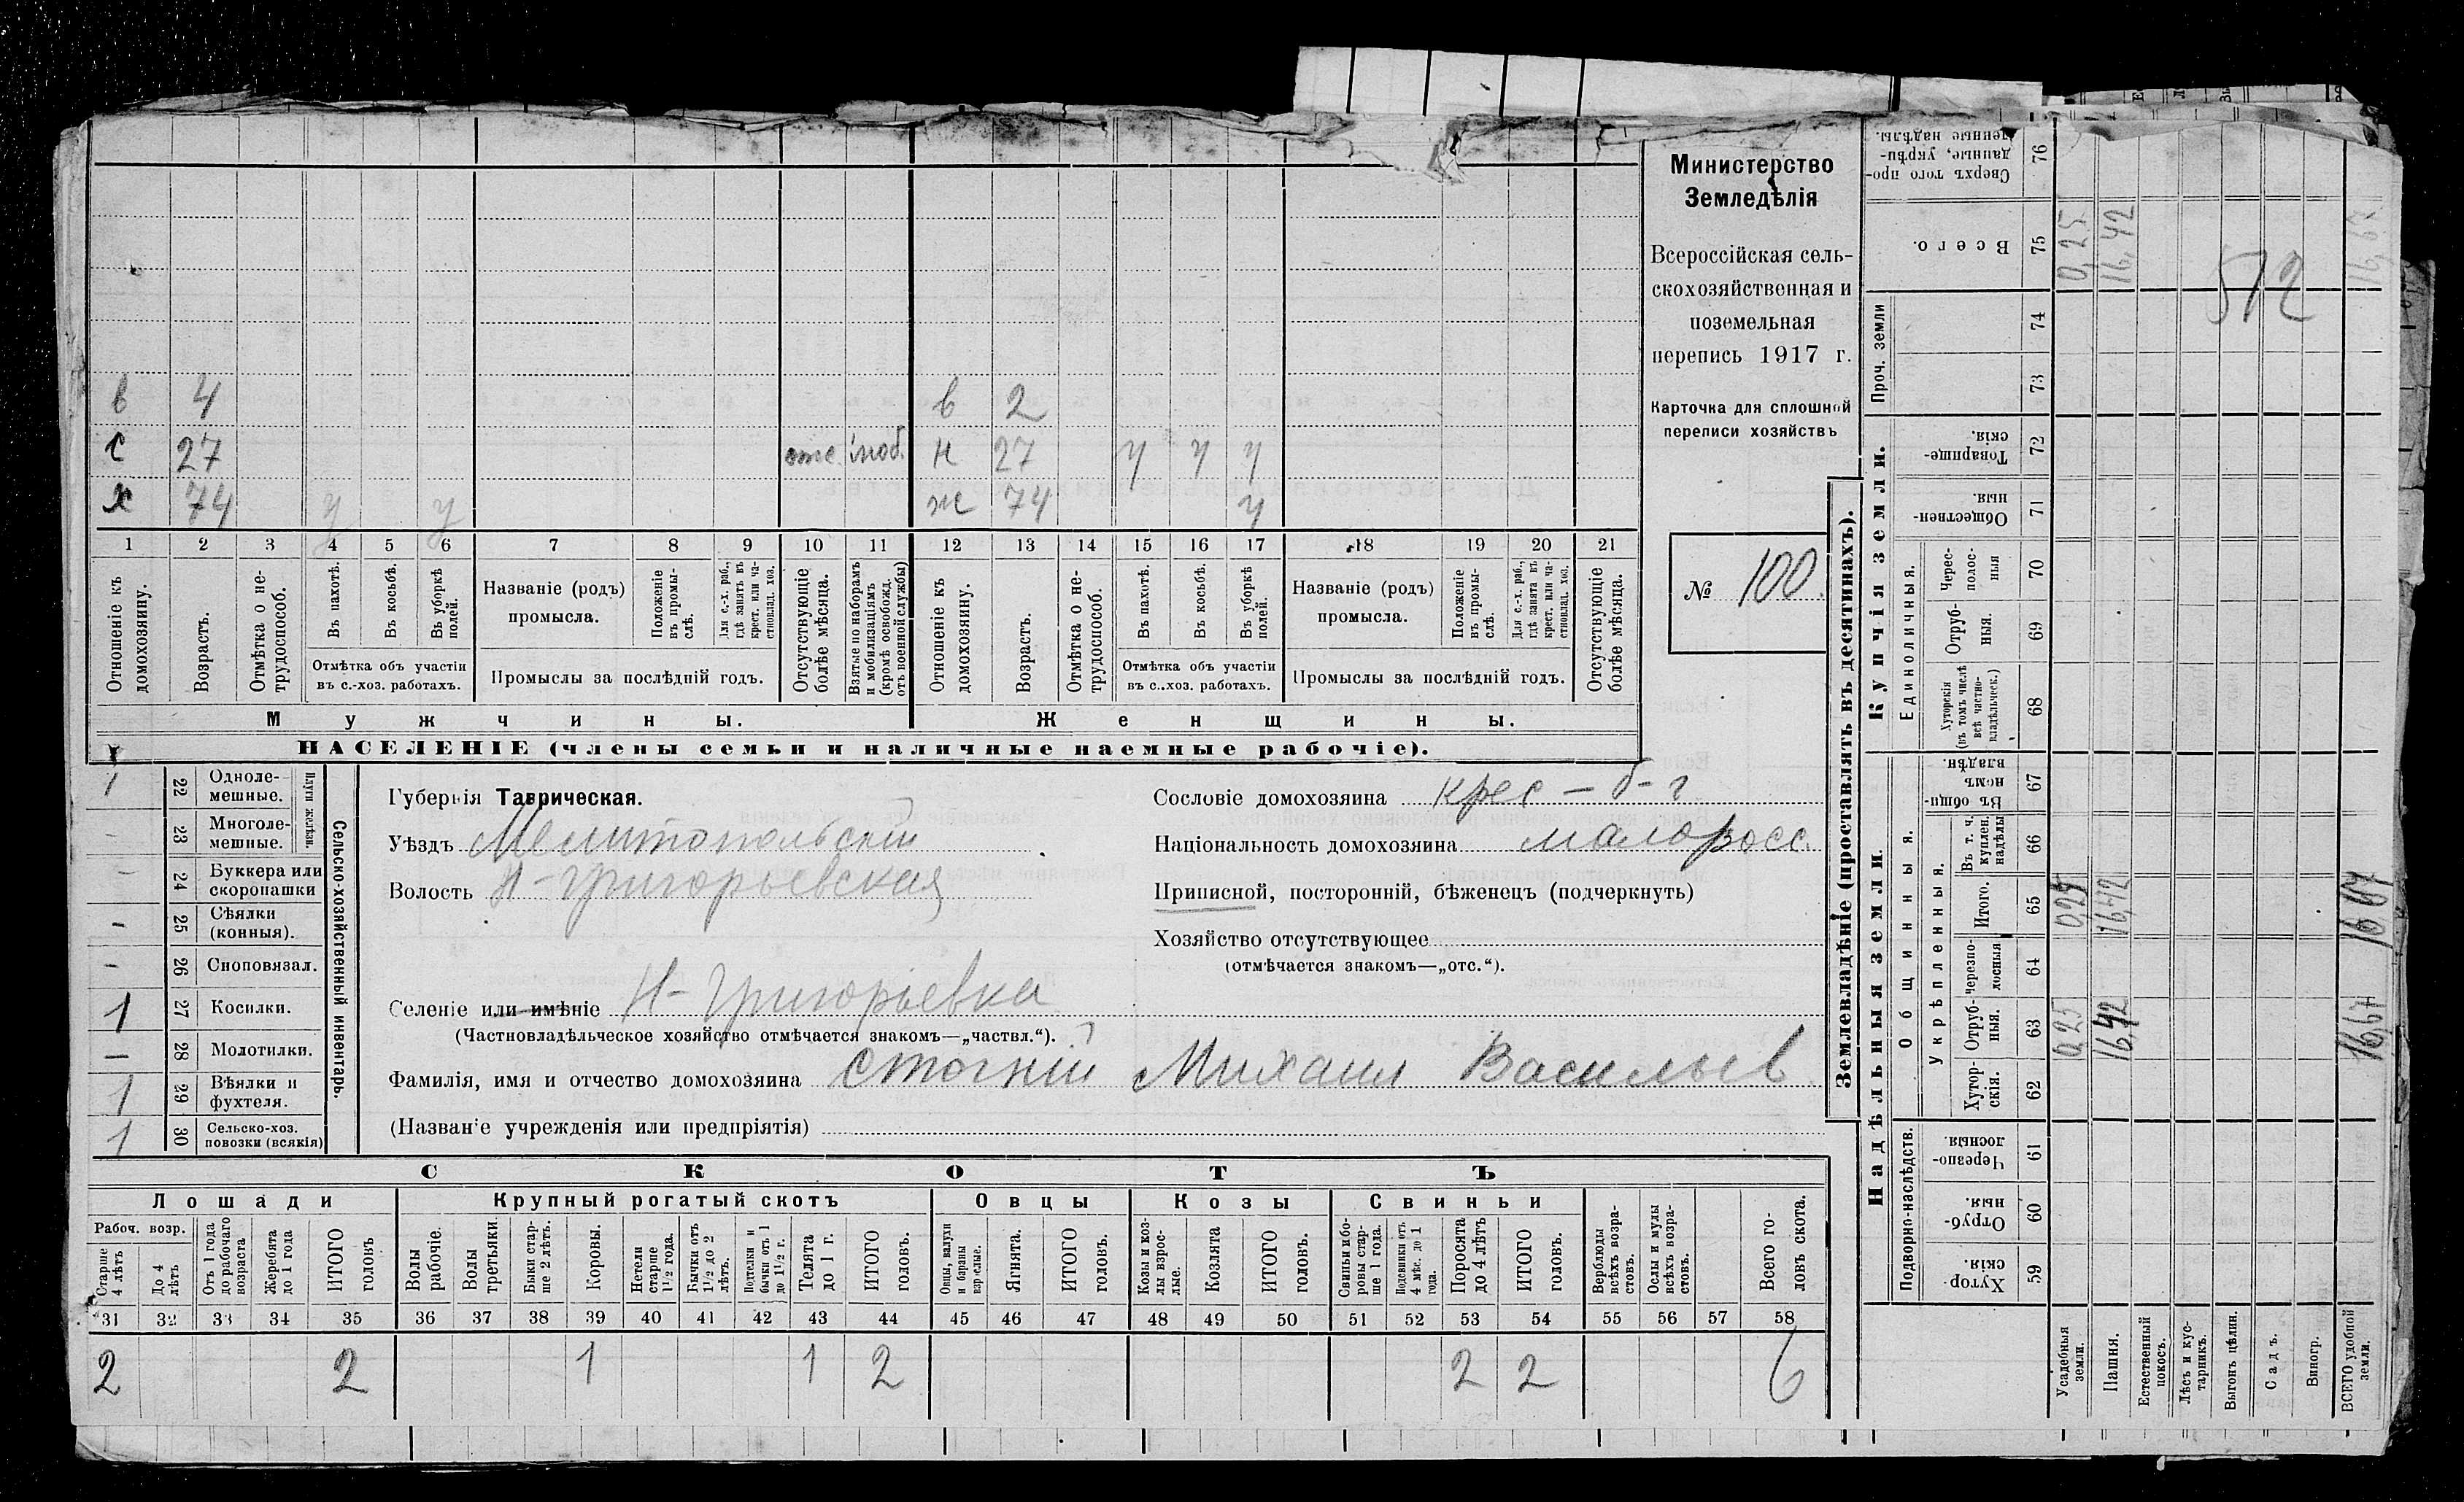 в 4 в 2
с 27 отс моб. н 27 у у у
х 74 у у ж 74 у
1 2 3 4 5 6 7 8 9 10 11 12 13 14 15 16 17 18 19 20 21
Отношеніе къ домохозяину.
Возрастъ.
Отмѣтка о не-
трудоспособ.
Въ пахотѣ.
Въ косьбѣ.
Въ уборкѣ
полей.
Отмѣтка объ участіи
въ с.-хоз. работахъ.
Названіе (родъ)
промысла.
Положеніе
въ промы-
слѣ.
Для с.-х. раб.,
гдѣ занятъ въ
крест. или ча-
стновлад. хоз.
Промыслы за послѣдній годъ.
Отсутствующіе
болѣе мѣсяца.
Взятые по наборамъ
и мобилизаціямъ
(кромѣ освобожд.
отъ военной службы)
Отношеніе къ
домохозяину.
Возрастъ.
Отмѣтка о не-
трудоспособ.
Въ пахотѣ.
Въ косьбѣ.
Въ уборкѣ
полей.
Отмѣтка объ участіи
въ с..хоз. работахъ.
Названіе (родъ)
промысла.
Положеніе
въ промы-
слѣ.
Для с.-х. раб.,
гдѣ занятъ въ
крест. или ча-
стновлад. хоз.
Промыслы за послѣдній годъ.
Отсутствующіе
болѣе мѣсяца.
Мужчины. Женщины.
НАСЕЛЕНІЕ (члены семьи и наличные наемные рабочіе).
Министерство
Земледѣлія
Всероссійская сель-
скохозяйственная и
поземельная
перепись 1917 г.
Карточка для сплошной
переписи хозяйствъ
№ 100.
1 22 Одноле-
мешные.
- 23 Многоле-
мешные.
Плуги желѣзн.
- 24 Буккера или
скоропашки
- 25 Сѣялки
(конныя).
- 26 Сноповязал.
1 27 Косилки.
- 28 Молотилки.
1 29 Вѣялки и
фухтеля.
1 30 Сельско-хоз.
повозки (всякія)
Сельско-хозяйственный инвентарь.
Губернія Таврическая.
Уѣздъ Мелитопольскій
Волость Н-Григорьевская
Селеніе или имѣніе Н-Григорьевка
(Частновладѣльческое хозяйство отмѣчается знакомъ—„частвл.“).
Фамилія, имя и отчество домохозяина Стогній Михаил Васильев
(Названіе учрежденія или предпріятія)
Сословіе домохозяина крес-
Національность домохозяина малоросс.
Приписной, посторонній, бѣженецъ (подчеркнуть)
Хозяйство отсутствующее
(отмѣчается знакомъ—„отс.“).
СКОТЪ
Лошади Крупный рогатый скотъ Овцы Козы Свиньи
Рабоч. возр.
Старше
4 лѣтъ
До 4
лѣтъ
Отъ 1 года
до рабочаго
возраста
Жеребята
до 1 года
ИТОГО
головъ
Волы
рабочіе.
Волы
третьяки.
Быки стар-
ше 2 лѣтъ.
Коровы.
Нетели
старше
1½ года.
Бычки отъ
1½ до 2
лѣтъ.
Подтелки и
бычки отъ 1
до 1½ г.
Телята
до 1 г.
ИТОГО
головъ.
Овцы, валухи
и бараны
взрослые.
Ягнята.
ИТОГО
головъ.
Козы и коз-
лы взрос-
лые.
Козлята
ИТОГО
головъ.
Свиньи и бо-
ровы стар-
ше 1 года.
Подсвинки отъ
4 мѣс. до 1
года.
Поросята
до 4 лѣтъ
ИТОГО
головъ.
Верблюды
всѣхъ возра-
стовъ.
Ослы и мулы
всѣхъ возра-
стовъ.
Всего го-
ловъ скота.
31 32 33 34 35 36 37 38 39 40 41 42 43 44 45 46 47 48 49 50 51 52 53 54 55 56 57 58
2 2 1 1 2 2 2 6
Землевладѣніе (проставлять въ десятинахъ).
Купчія земли.
Надѣльныя земли.
Сверхъ того про-
данные, укрѣп-
ленные надѣлы.
76
Всего.
75 0,25 16,42 16,67
512
Проч. земли
74
73
Товарище-
скія.
72
Обществен-
ныя.
71
Единоличныя.
Черес-
полос-
ныя
70
Отруб-
ныя.
69
Хуторскія
(въ томъ числѣ
всѣ частно-
владѣльческ.)
68
Общинныя.
Въ общин-
номъ
владѣн.
67
Укрѣпленныя.
Въ т. ч.
куплен.
надѣлы
66
Итого.
65 0,25 16,42 16,67
Черезпо-
лосныя
64
Отруб-
ныя.
63 0,25 16,42 16,67
Хутор-
скія.
62
Подворно-наслѣдств.
Черезпо-
лосныя
61
Отруб-
ныя.
60
Хутор-
скія.
59
Усадебныя
земли.
Пашня.
Естественный
покосъ.
Лѣсъ и кус-
тарникъ.
Выгонъ цѣлин.
Садъ.
Виногр.
ВСЕГО удобной
земли.